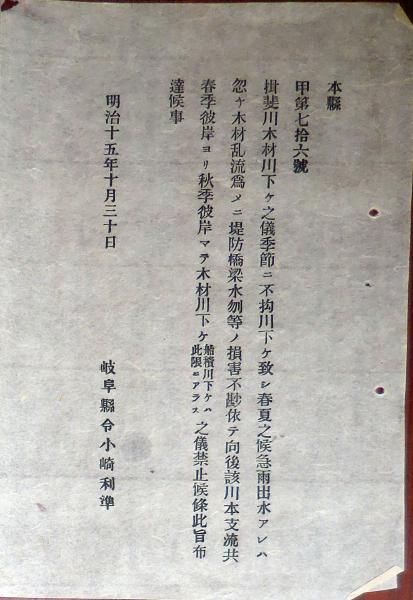 本縣
甲第七拾六號
揖斐川木材川下ケ之儀季節ニ不拘川下ケ致シ春夏之候急雨出水アレハ
忽ケ木材乱流爲メニ堤防橋梁水刎等ノ損害不尠依テ向後該川本支流共
春季彼岸ヨリ秋季彼岸マテ木材川下ケ船積川下ケハ此限ニアラス之儀禁止候條此旨布
達候事
明治十五年十月三十日
岐阜縣令小崎利準